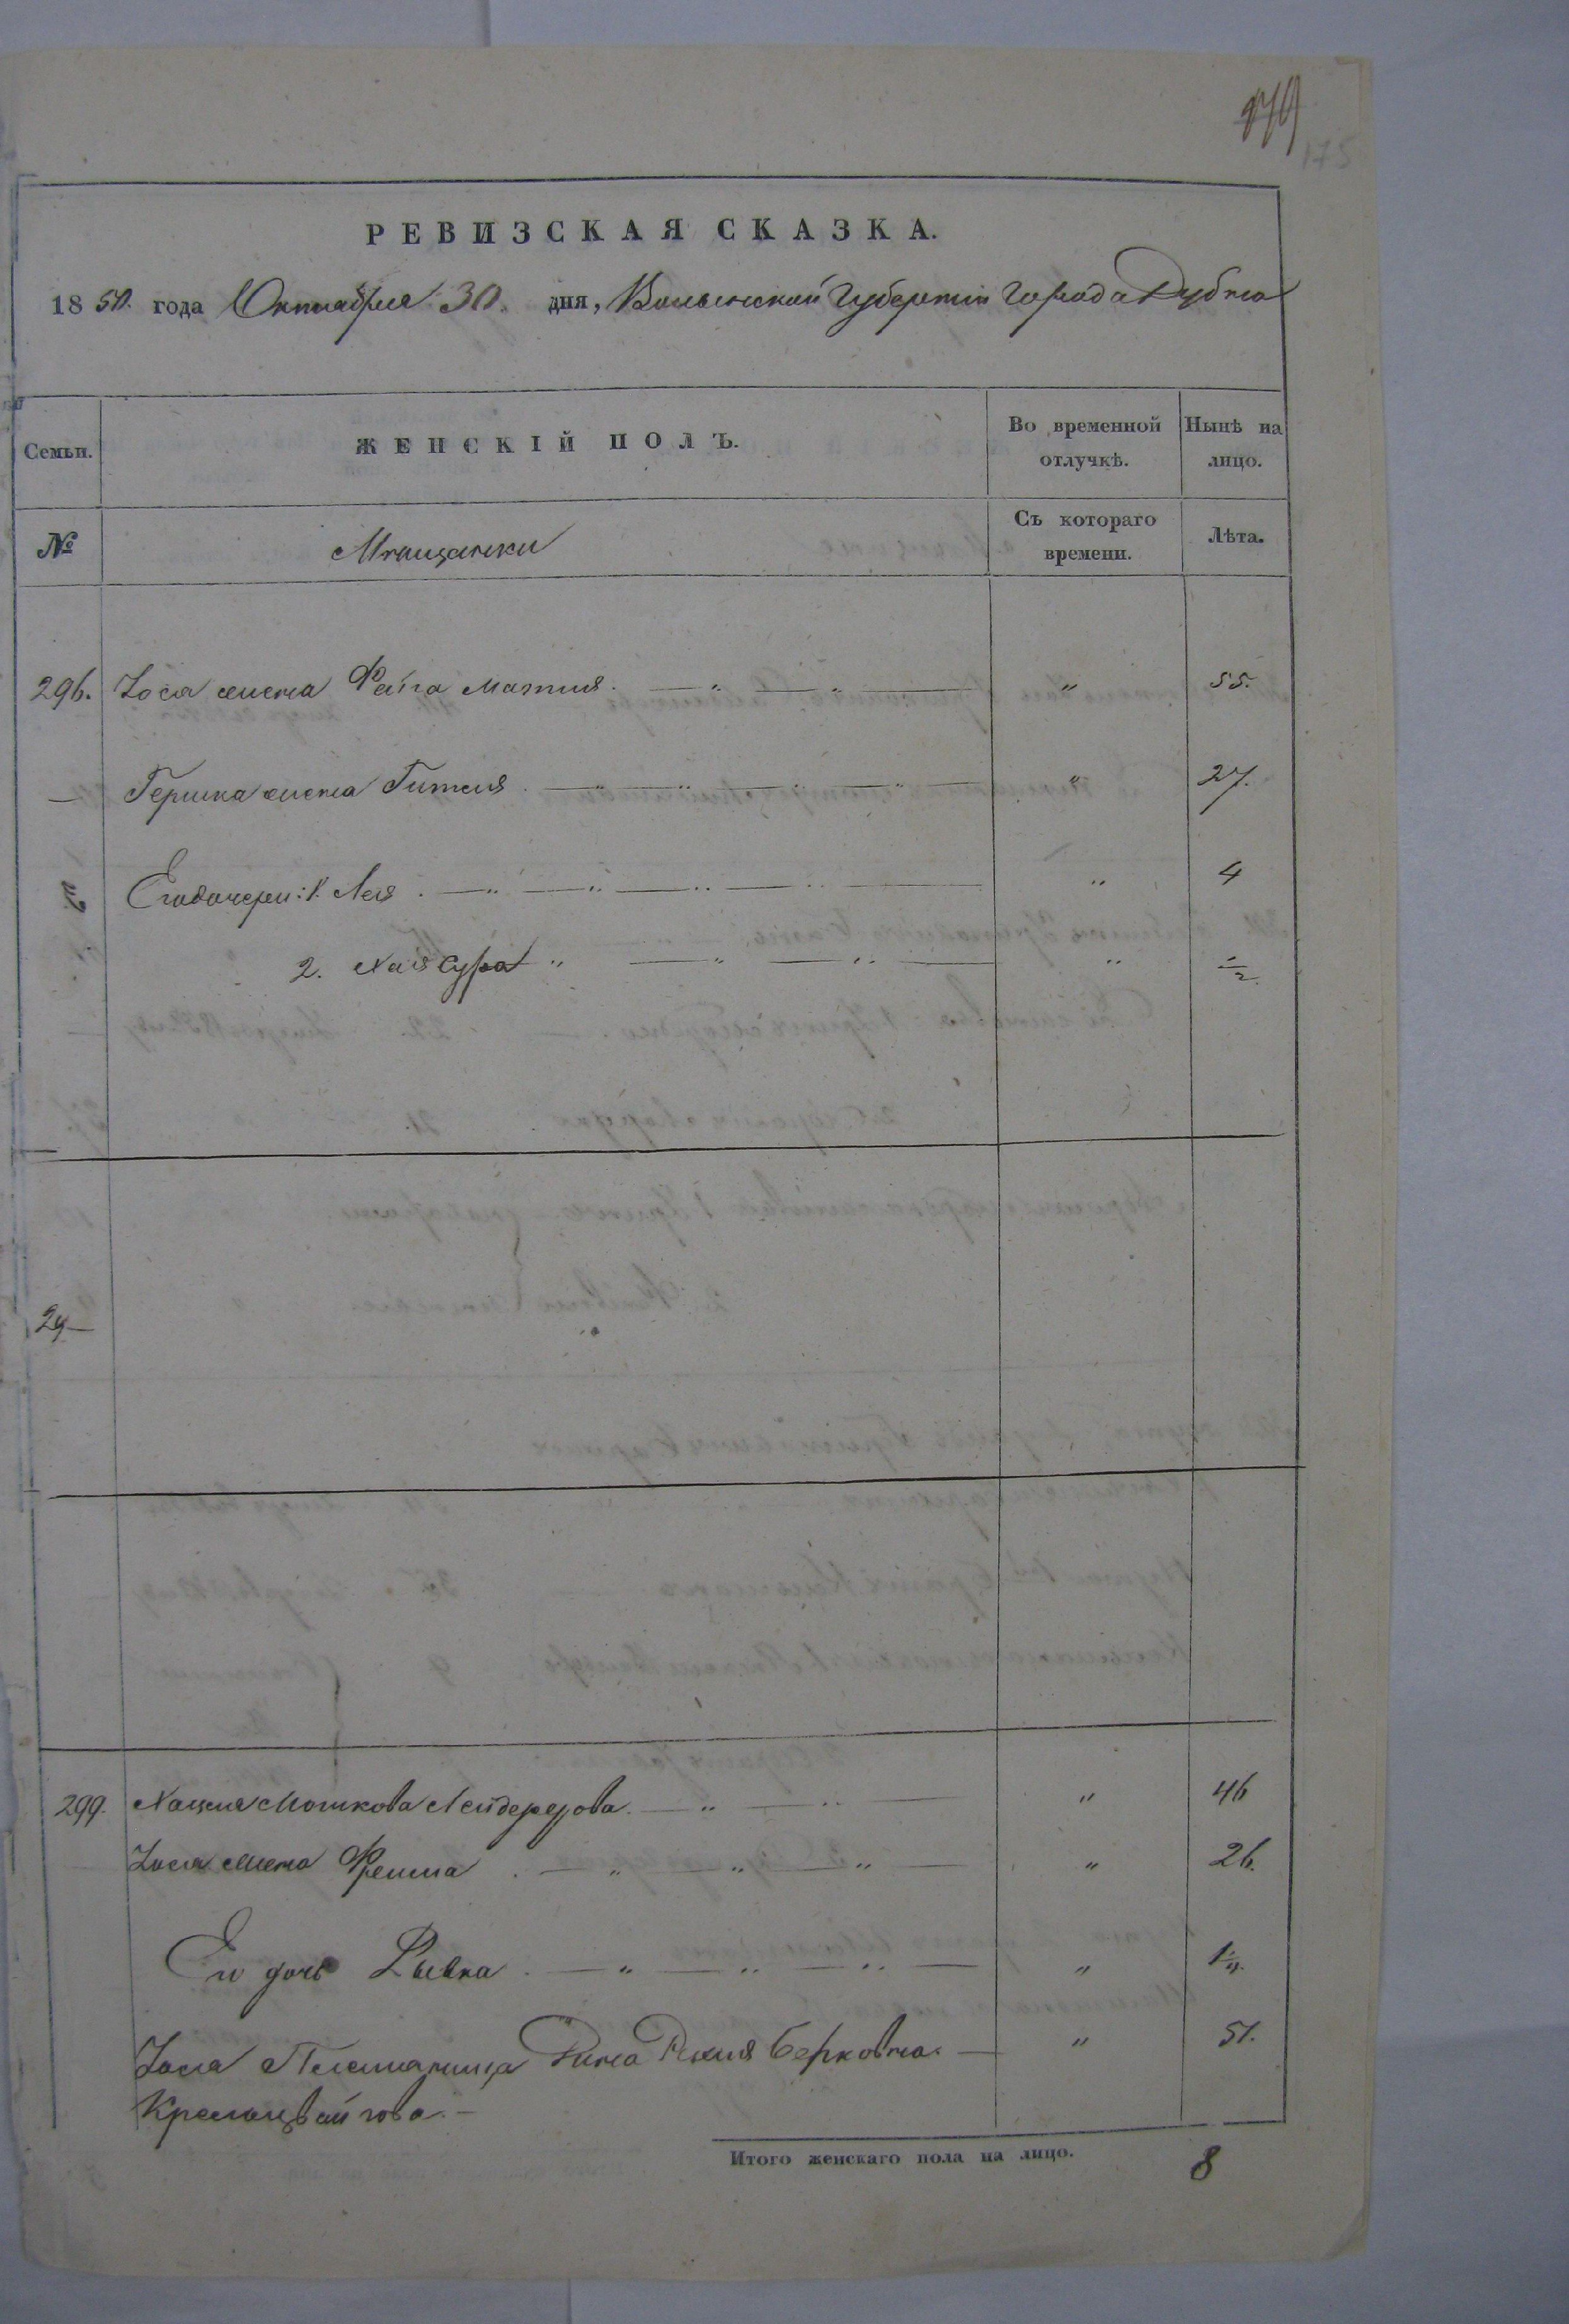 179
175
РЕВИЗСКАЯ СКАЗКА.
1850. года Октября 30. дня, Волынской Губернiи Города Дубна
Семьи.
ЖЕНСКІЙ ПОЛЪ.
Во временной отлучкѣ.
Нынѣ на лицо.
№
Мѣщанки
Съ котораго времени.
Лѣта.
296. Іося жена Фейга Матля. — „ — „ — „ 55.
— Гершка жена Гитля. — „ — „ — „ — „ — „ 27.
Его дочери: 1. Лея. — „ — „ — „ — „ — „ 4
2. Хая Сура „ — „ — „ — „ ½
29
299. Хацкля Мошкова Лейдерова. — „ — „ — „ 46
Іося жена Фрейма. — „ — „ — „ — „ 26.
Его дочь Рывка. — „ — „ — „ — „
Іося Племяница Рыся Берковна. — „ 51.
Итого женскаго пола на лицо. 8